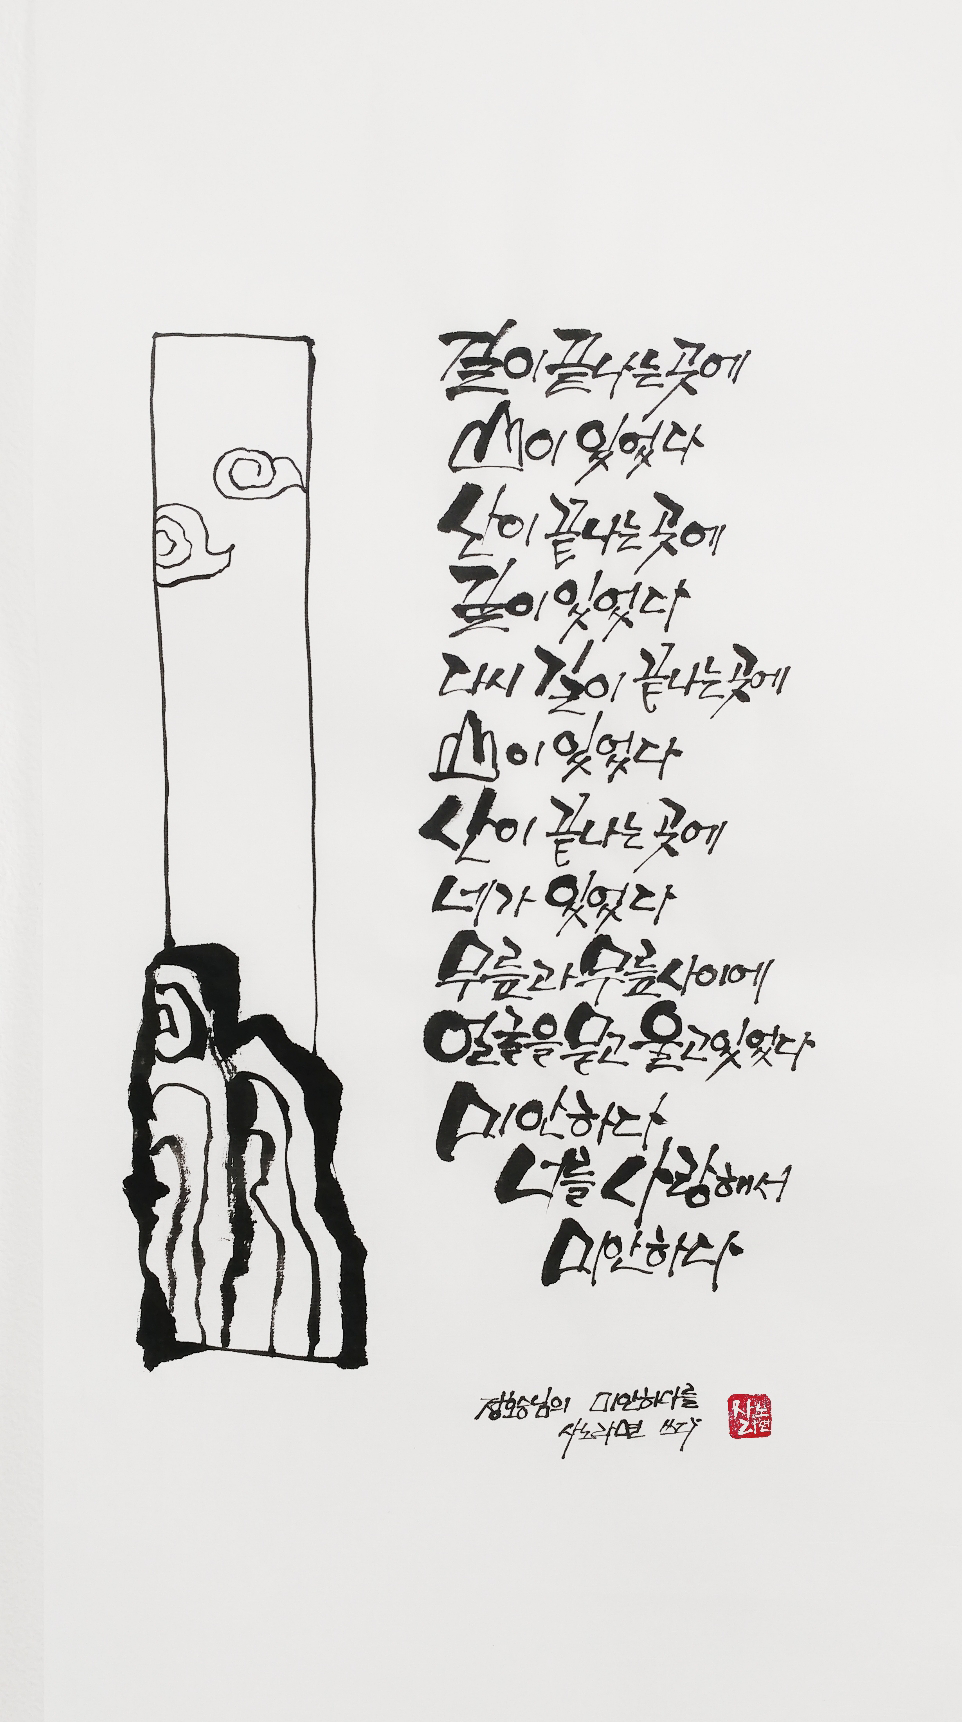 길이 끝나는 곳에
山이 있었다
산이 끝나는 곳에
길이 있었다
다시 길이 끝나는 곳에
山이 있었다
산이 끝나는 곳에
네가 있었다
무릎과 무릎 사이에
얼굴을 묻고 울고 있었다
미안하다
너를 사랑해서
미안하다
정호승님의 미안하다를
사노라면 쓰다
사노
라면